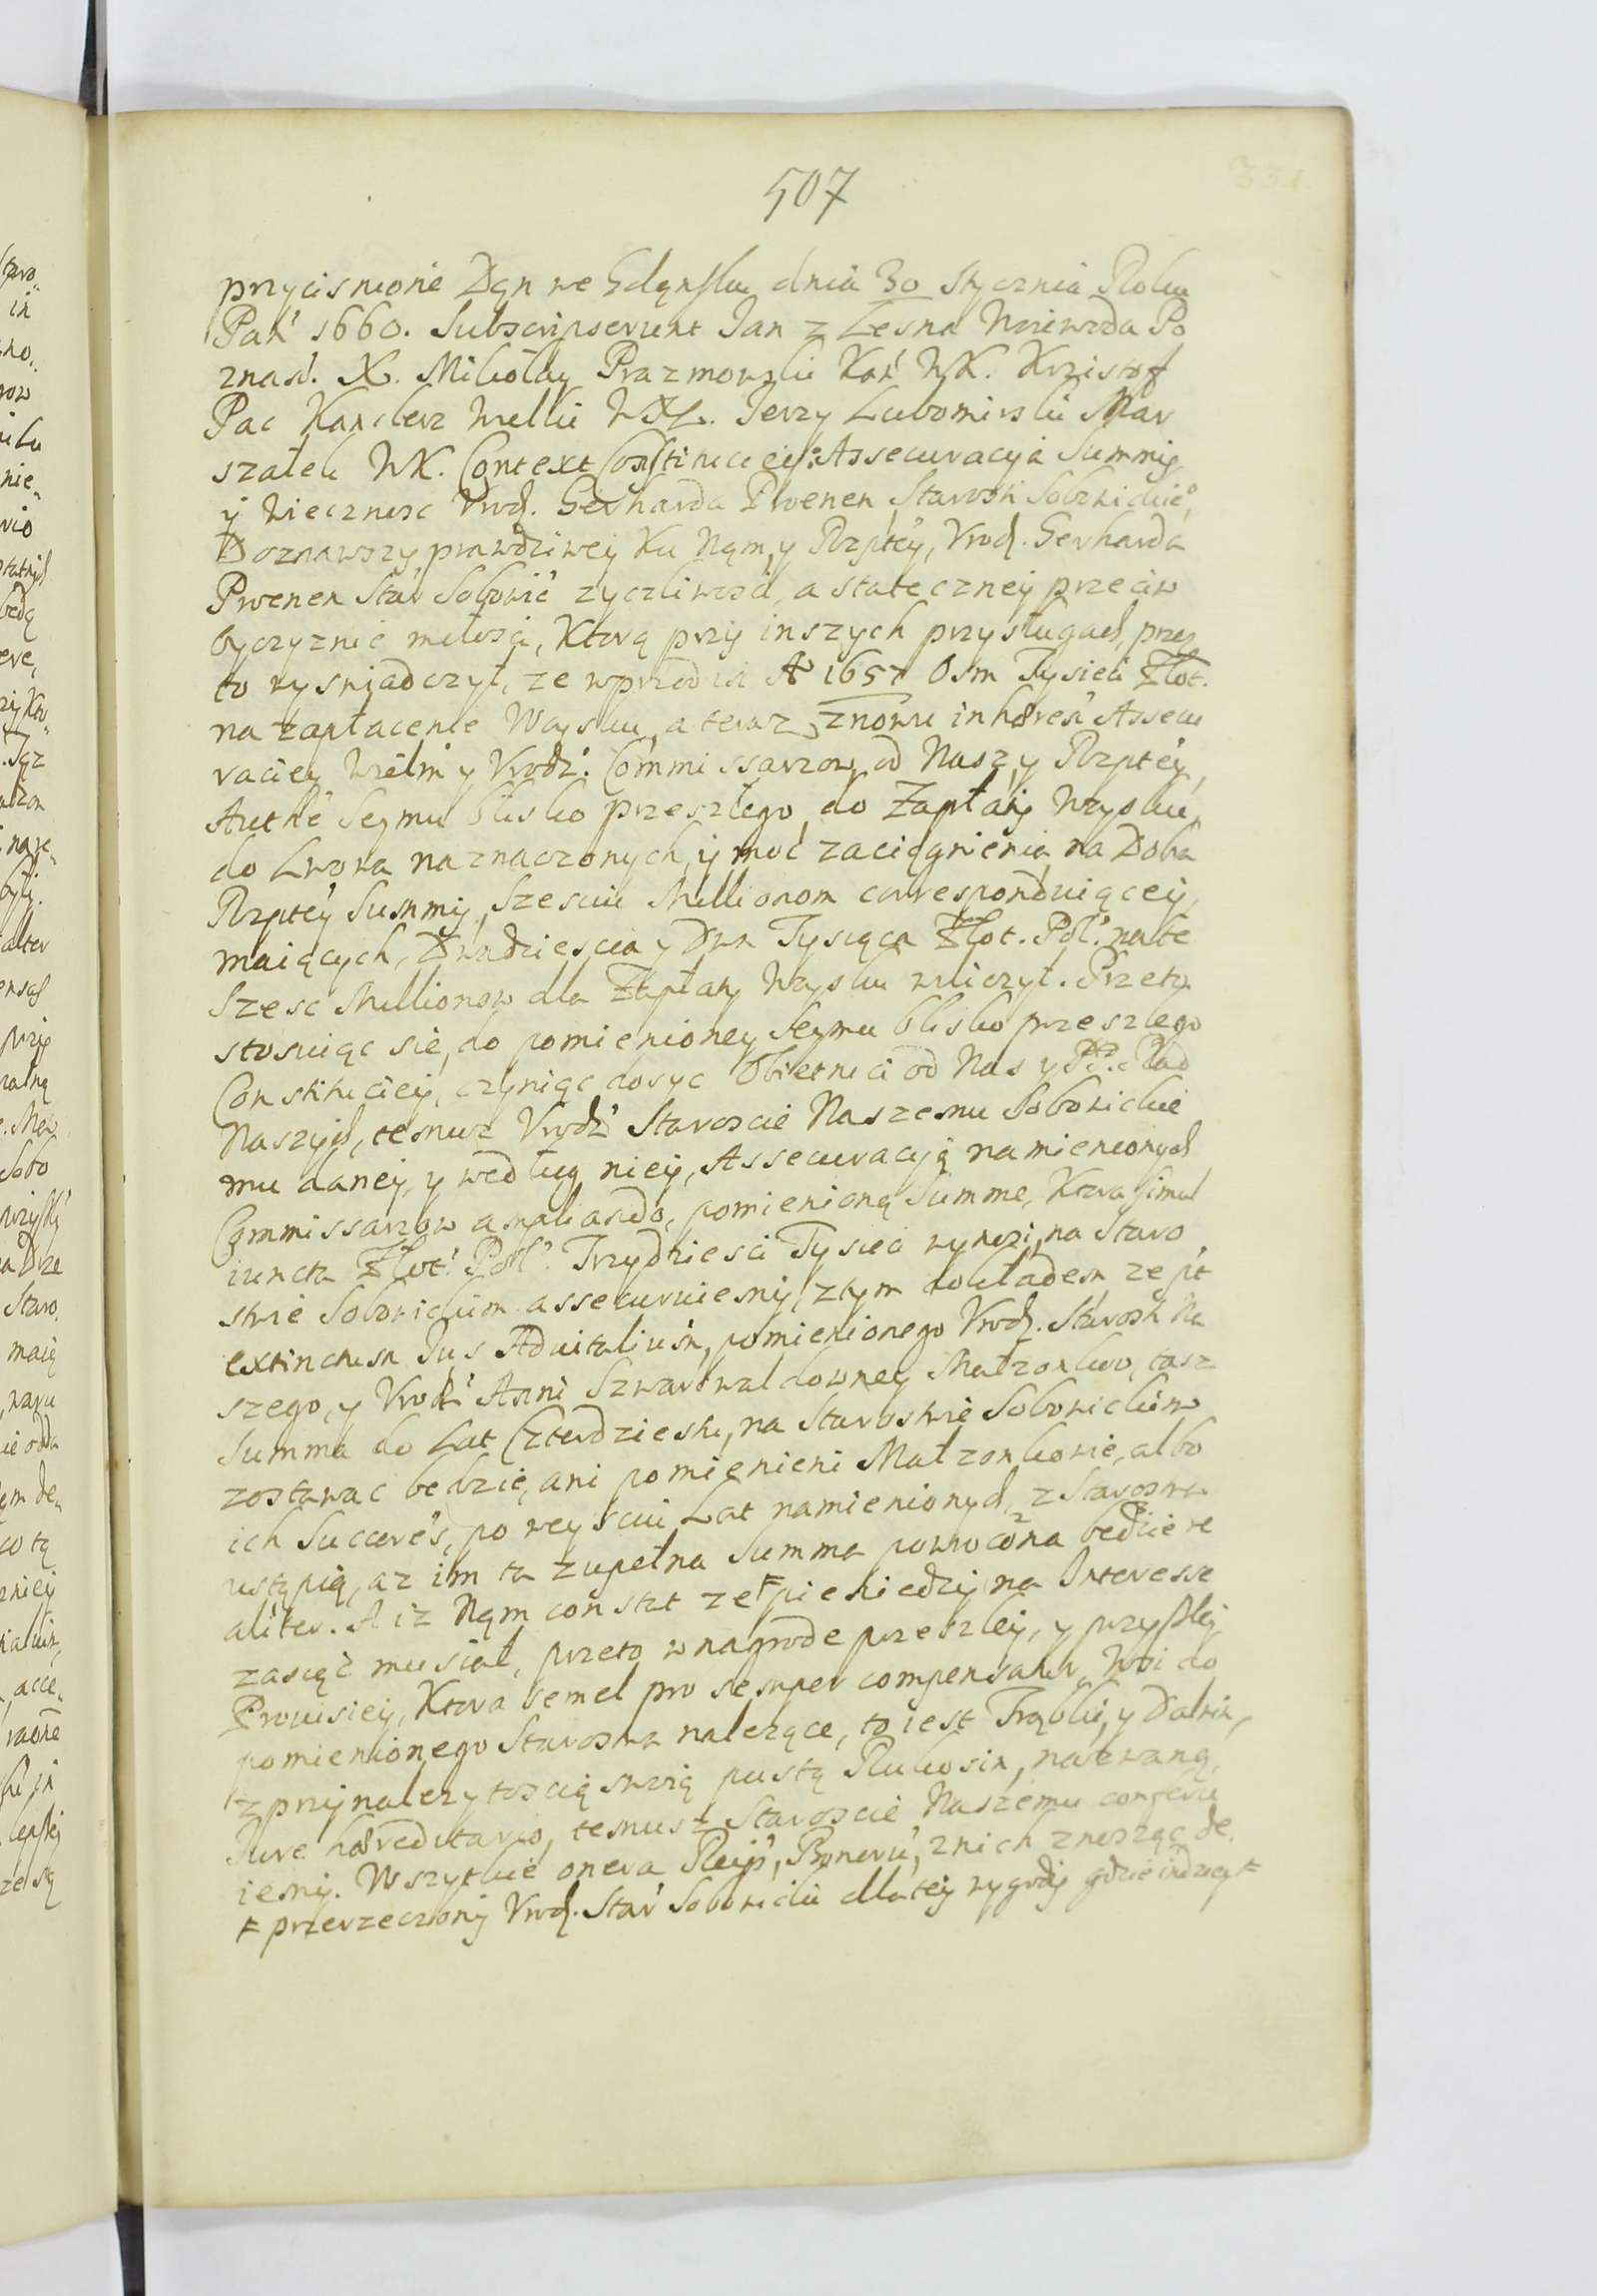 507
przycisnione Dąn we Gdąnsku dnia 30 Stycznia Roku
Pań 1660. Subscripserunt Jan z Lesna Woiewoda Po
znań. X. Mikołay Prazmowski Kań WK. Krzistof
Pac Kanclerz Wielki WXL. Jerzy Lubomirski Mar
szałek WK. Context Constitucieÿ: Assecuracÿa Summÿ
ÿ Wiecznosc Vrodz. Gerharda Proenen Starosti Sobowickie°,
Doznawszy prawdziweÿ Ku Nąm, y Rzpteÿ, Vrodz. Gerharda
Proenen Star Sobowic zyczliwosci, a stateczneÿ przeciw
Oyczyznie miłosci, Ktorą przÿ inszych przysługach, przez
to wyswiadczył, ze wprzod in A° 1657 Osm Tysieci Złot.
na zapłacenie Woysku, a teraz znowu inhaeren Assecu
racieÿ Wielm y Vrodz. Commissarzow od Nas, y Rzpteÿ,
Authe Seymu blisko przeszłego, do Zapłatÿ Woysku,
do Lwowa naznaczonych, ÿ moc zaciągnienia na Dobra
Rzpteÿ Summÿ, Szesciu Millionom correspondiuąceÿ,
maiących, Dwadziescia y Dwa Tysiąca Złot. Pol. na te
Szesc Millionow dla Zapłaty Woysku wyliczył. Przeto
stosuiąc sie, do pomienioneÿ Seymu blisko przeszłego
Constitucieÿ, czyniąc dosyc Obietnici od Nas y PP. Rad
Naszÿch, temusz Vrodz Staroscie Naszemu Sobowickie
mu daneÿ, y według nieÿ, Assecuracÿą namienionÿch
Commissarzow ampliando, pomienioną Summe, Ktora simul
iuncta Złot. Pol. Trzydziesci Tysieci wynosi, na Staro
stwie Sobowickim assecuruiemÿ, z tym dokładem, ze pt
extinctum Jus Advitalium, pomienionego Vrodz. Starosti Na
szego, y Vrodz Anni Szwarcwaldowneÿ Małzonkow, tasz
Summa do Lat Czterdziestu, na Starostwie Sobowickim
zostawac bedzie, ani pomienieni Małzonkowie, albo
ich Succeres, po weysciu Lat namienionÿch, z Starostwa
ustąpią, az im ta zupełna Summa powrocona bedzie re
aliter. A iz Nąm constat ze ⌗ pieniedzÿ na Interesse
zaciąć musiał, przeto w nagrode przeszleÿ, y przyszleÿ
Prowisieÿ, Ktora semel pro semper compensatur, Wsi do
pomienionego Starostwa nalezące, to iest Trąbki, y Dalwin,
z przÿnalezytoscią swoią pustą Rukosin, nazwaną,
Jure haereditario, temusz Staroscie Naszemu conferu
iemÿ. Wszytkie onera Reip, Poneru, z nich znosząc de
⌗ przerzeczonÿ Vrodz. Star Sobowicki dla teÿ wygodÿ gdzie indzieÿ ⌗